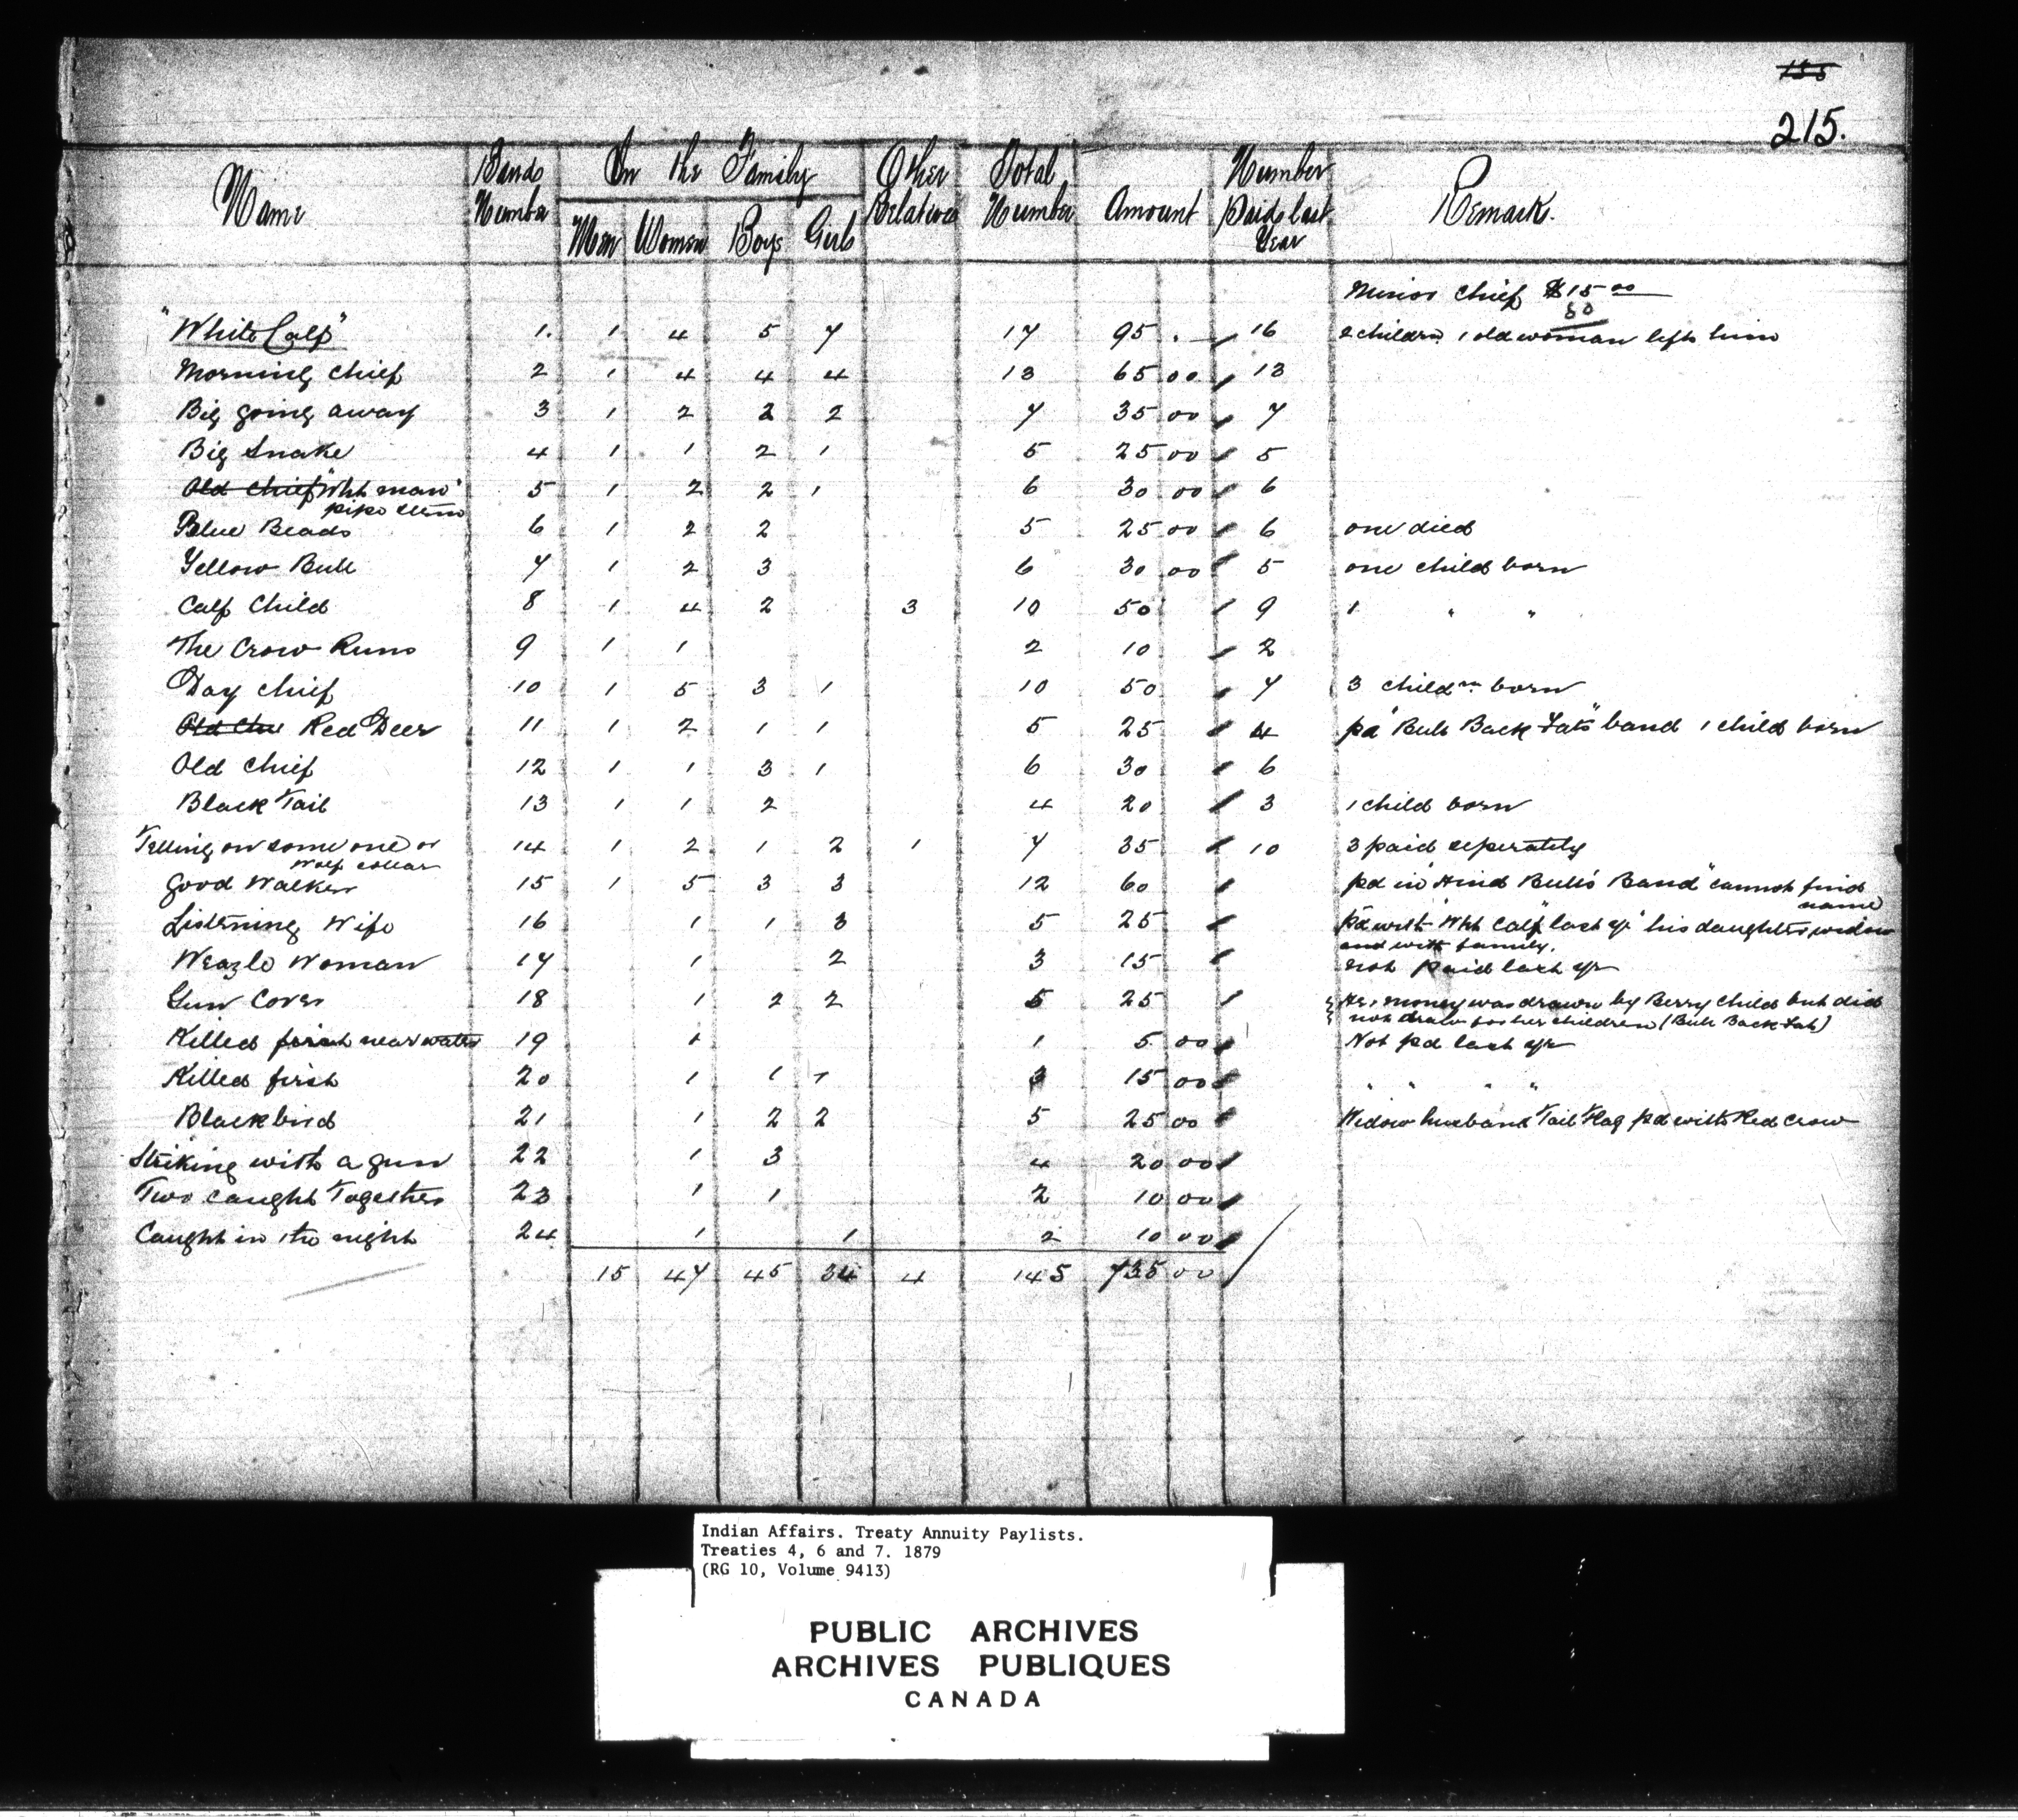 155
215.
Name Bands Number In the Family Men Women Boys Girls Other Relatives Total Number Amount Number Paid last Year Remarks.
Minor Chief $15 00
80
"White Calf" 1. 1 4 5 7 17 95 . — 16 2 childrn 1 old woman left him
Morning Chief 2 1 4 4 4 13 65 00 13
Big going away 3 1 2 2 2 7 35 00 7
Big Snake 4 1 1 2 1 5 25 00 5
Old Chief "Wht man" 5 1 2 2 1 6 30 00 6
pipe stem
Blue Beads 6 1 2 2 5 25 00 6 one died
Yellow Bull 7 1 2 3 6 30 00 5 one child born
Calf Child 8 1 4 2 3 10 50 9 1 " "
The Crow Runs 9 1 1 2 10 2
Day Chief 10 1 5 3 1 10 50 7 3 childrn born
Old Chie Red Deer 11 1 2 1 1 5 25 4 pd "Bull Back Fats" band 1 child born
Old Chief 12 1 1 3 1 6 30 6
Black Tail 13 1 1 2 4 20 3 1 child born
Telling on some one or 14 1 2 1 2 1 7 35 10 3 paid seperately
Wolf collar
Good Walker 15 1 5 3 3 12 60 pd in "Hind Bull's Band" cannot find
name
Listening Wife 16 1 1 3 5 25 pd with "Wht Calf" last yr his daughters widow
and with family.
Weazle Woman 17 1 2 3 15 not paid last yr
Gun Cover 18 1 2 2 5 25 Her money was drawn by Berry Child but did
not draw for her children (Bull Back Fat)
Killed first near water 19 1 1 5 00 Not pd last yr
Killed first 20 1 1 1 3 15 00 " " " "
Blackbird 21 1 2 2 5 25 00 Widow husband Tail Flag pd with Red Crow
Striking with a gun 22 1 3 4 20 00
Two caught Together 23 1 1 2 10 00
Caught in the night 24 1 1 2 10 00
15 47 45 34 4 145 735 00
Indian Affairs. Treaty Annuity Paylists.
Treaties 4, 6 and 7. 1879
(RG 10, Volume 9413)
PUBLIC ARCHIVES
ARCHIVES PUBLIQUES
CANADA